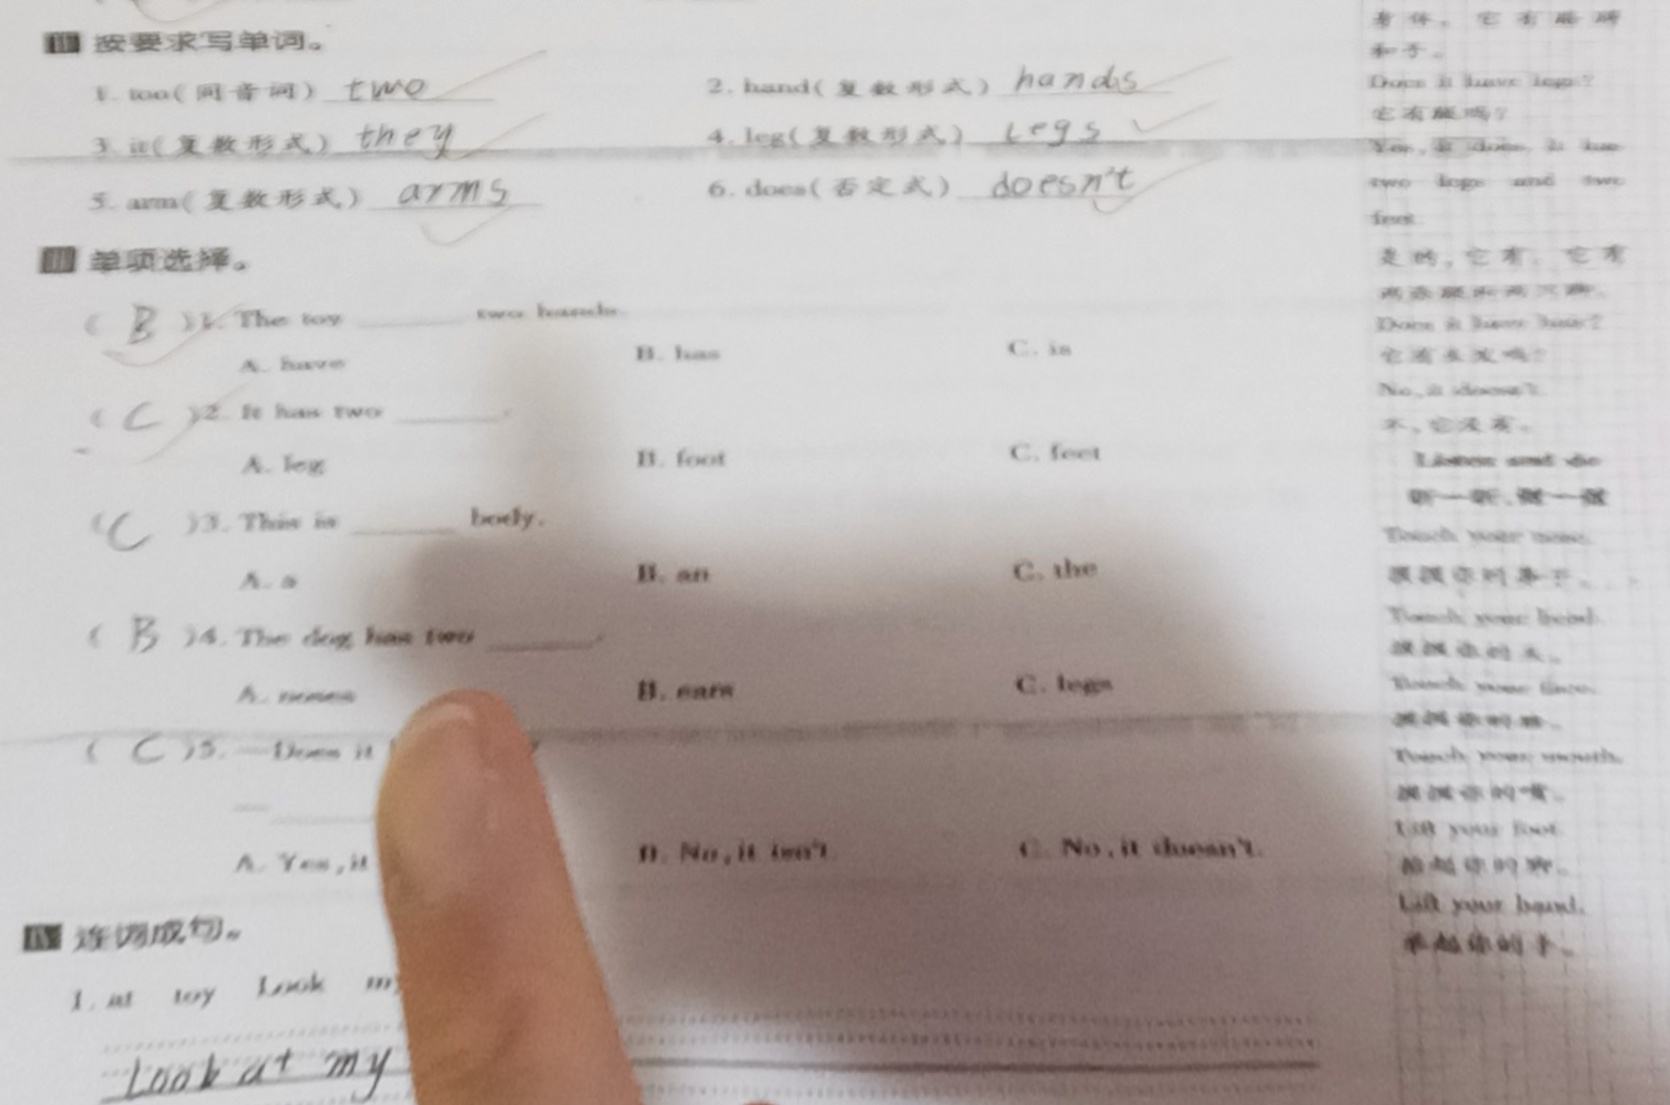 II 按要求写单词。
1. too(同音词) two 2. hand(复数形式) hands
3. it(复数形式) they 4. leg(复数形式) legs
5. arm(复数形式) arms 6. does(否定式) doesn't
III 单项选择。
( B )1. The toy ______ two hands.
A. have B. has C. is
( C )2. It has two ______.
A. leg B. foot C. feet
( C )3. This is ______ body.
A. a B. an C. the
( B )4. The dog has two ______.
A. noses B. ears C. legs
( C )5. —Does it
—
A. Yes, it B. No, it isn't. C. No, it doesn't.
IV 连词成句。
1. at toy Look my
Look at my
身体。它有胳膊
和手。
Does it have legs?
它有腿吗?
Yes, it does. It has
two legs and two
feet.
是的,它有。它有
两条腿和两只脚。
Does it have hair?
它有头发吗?
No, it doesn't.
不,它没有。
Listen and do
听一听,做一做
Touch your nose.
摸摸你的鼻子。
Touch your head.
摸摸你的头。
Touch your face.
摸摸你的脸。
Touch your mouth.
摸摸你的嘴。
Lift your foot.
抬起你的脚。
Lift your hand.
举起你的手。